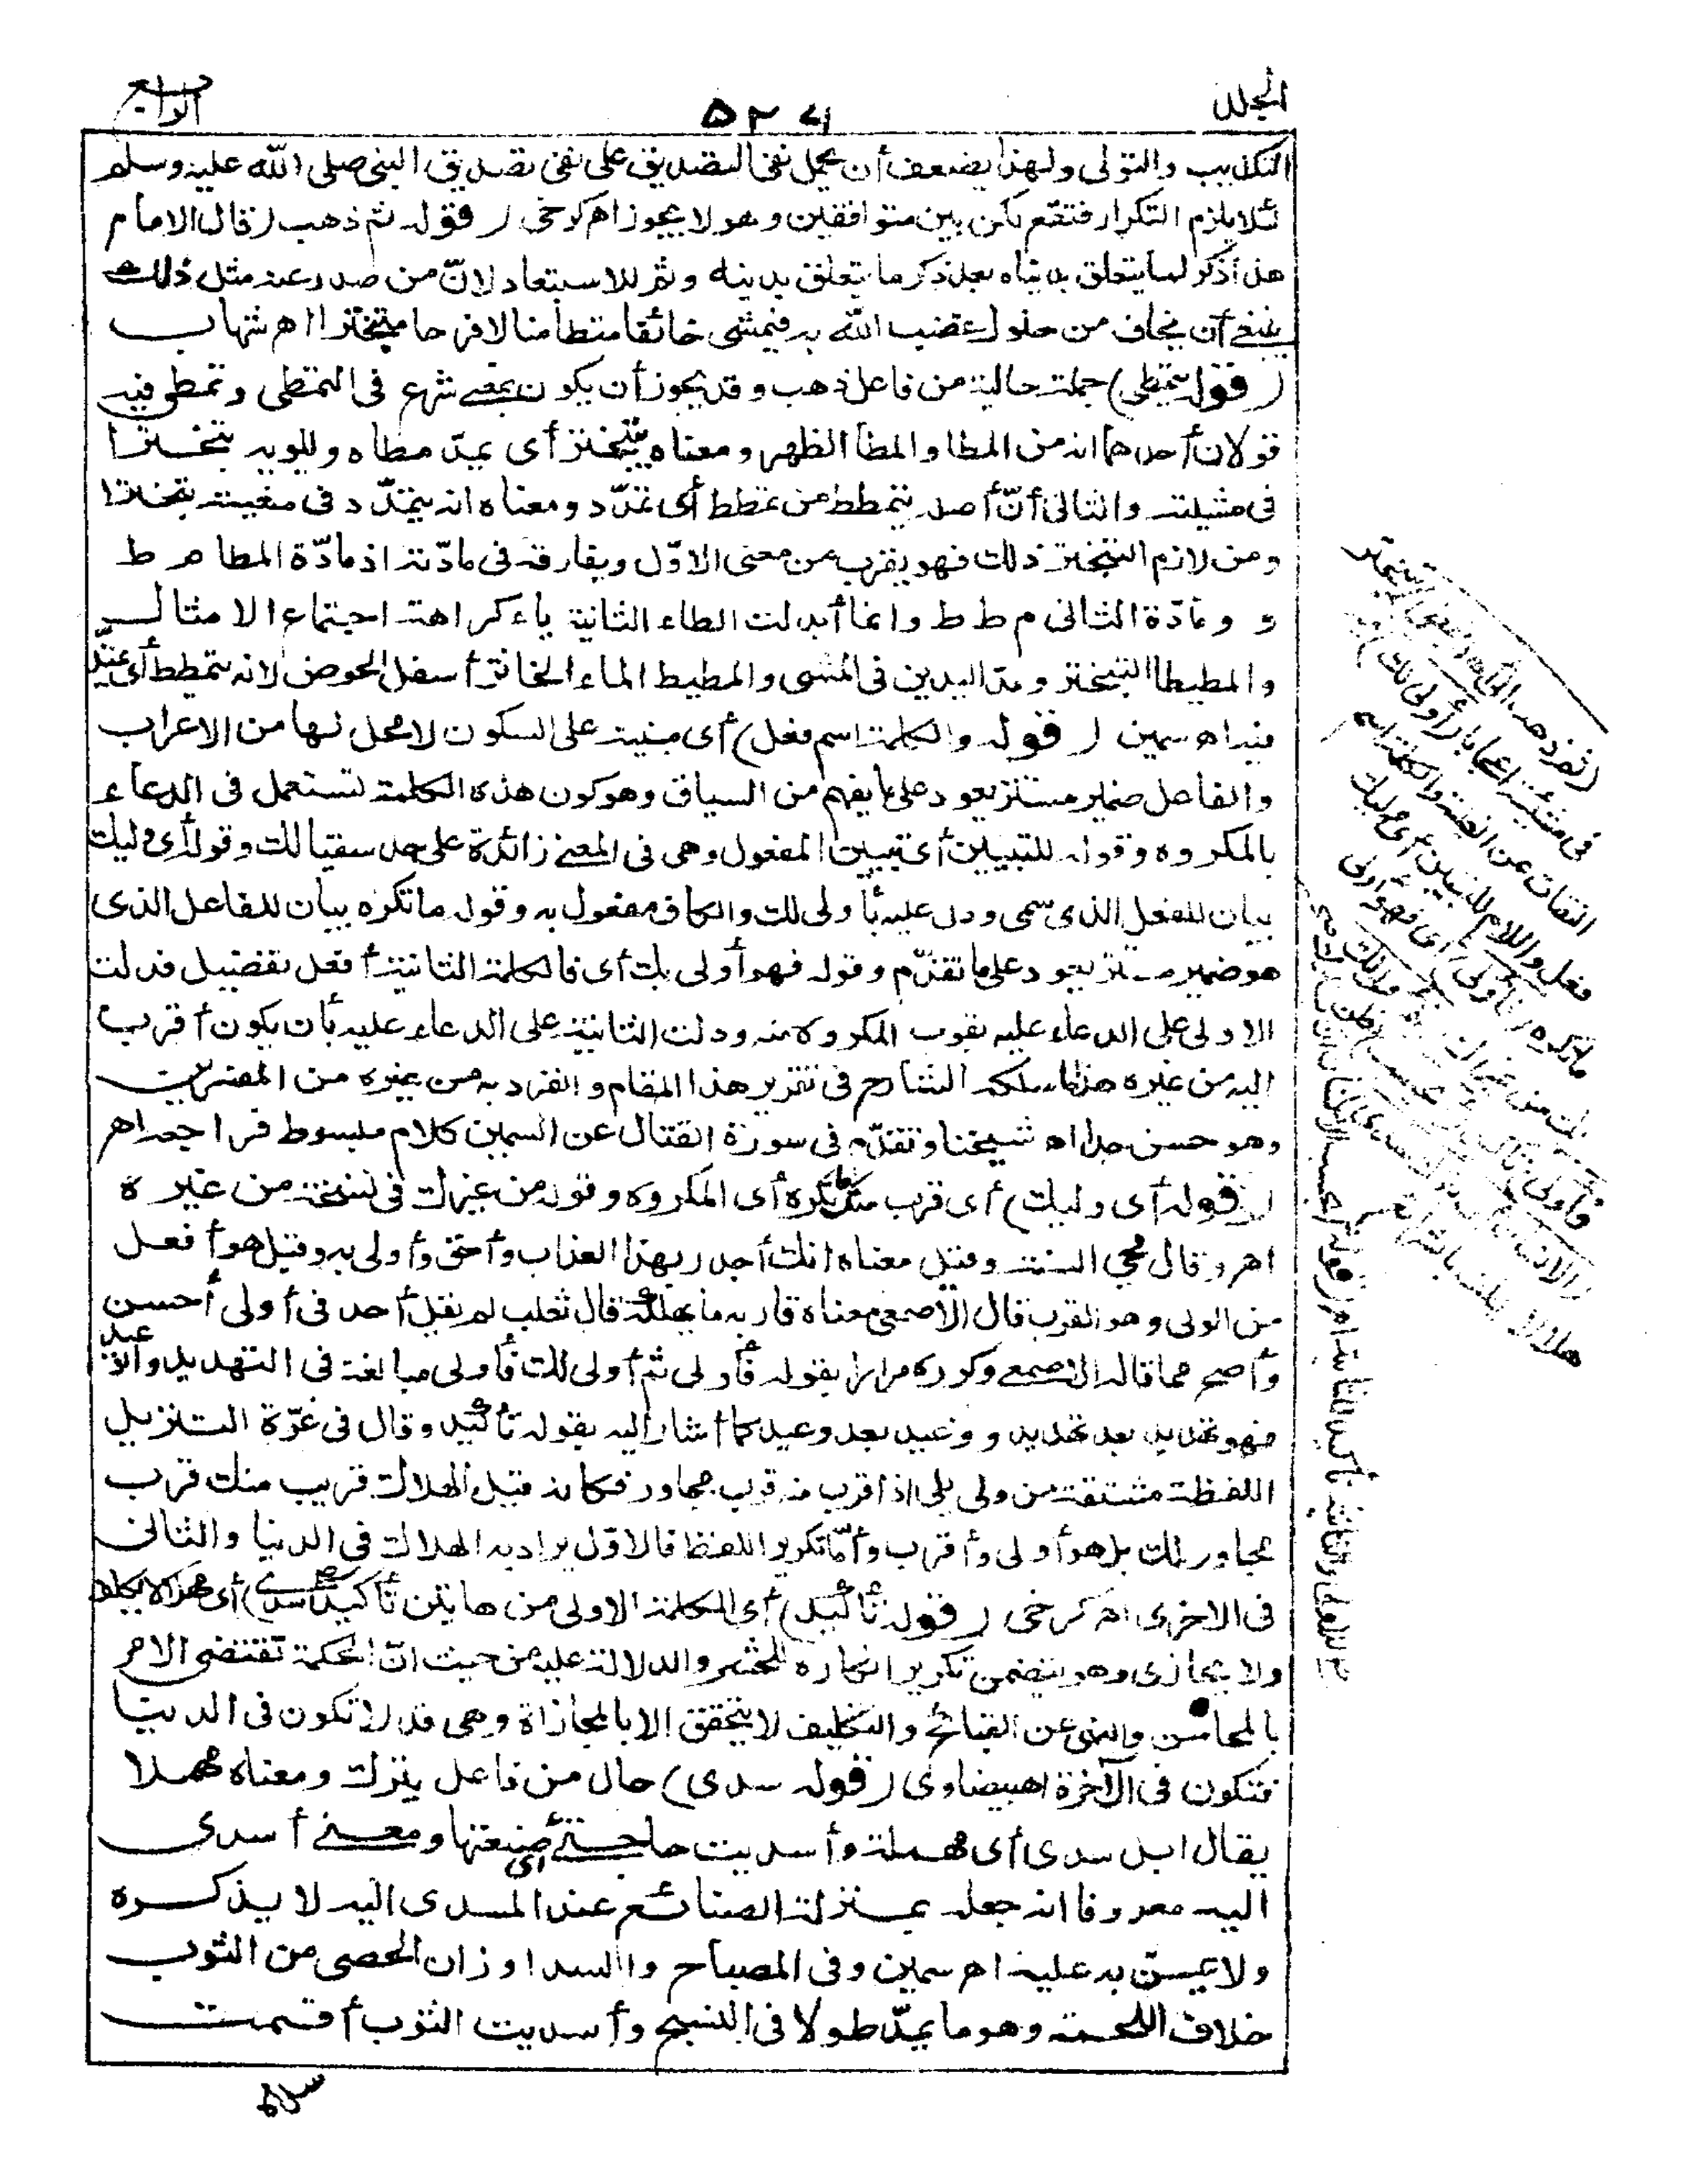 المجلد
٥٢٦
الرابع
التكذيب والتولى ولهذا يضعف أن يحمل نفى التصديق على نفى تصديق النبى صلى الله عليه وسلم
لئلا يلزم التكرار فتقع لكن بين متوافقين وهو لا يجوز اهر كرخى ( قوله ثم ذهب ) قال الامام
هذا ذكر لما يتعلق بدنياه بعد ذكر ما يتعلق بدينه وثم للاستبعاد لانّ من صدر عنه مثل ذلك
ينبغى أن يخاف من حلول غضب الله به فيمشى خائفا متطامنا لا فرحا متبخترا اهر شهاب
( قوله يتمطى ) جملة حالية من فاعل ذهب وقد يجوز أن يكون بمعنى شرع فى التمطى وتمطى فيه
قولان أحدهما انه من المطا والمطا الظهر ومعناه يتبختر أى يمدّ مطاه ويلويه تبخترا
فى مشيته والثانى أنّ أصله يتمطط من تمطط أى تمدّد ومعناه انه يتمدّد فى مشيته تبخترا
ومن لازم التبختر ذلك فهو يقرب من معنى الاوّل ويفارقه فى مادّته اذ مادّة المطا م ط
و ومادّة الثانى م ط ط وانما أبدلت الطاء الثانية ياء كراهة اجتماع الامثال
والمطيطا التبختر ومدّ اليدين فى المشى والمطيط الماء الخاثر أسفل الحوض لانه يتمطط أى يمتدّ
فيه اهر سمين ( قوله والكلمة اسم فعل ) أى مبنية على السكون لا محل لها من الاعراب
والفاعل ضمير مستتر يعود على ما يفهم من السياق وهو كون هذه الكلمة تستعمل فى الدعاء
بالمكروه وقوله للتبيين أى تبيين المفعول وهى فى المعنى زائدة على حد سقيا لك وقوله أى وليك
بيان للفعل الذى سمى ودل عليه بأولى لك والكاف مفعول به وقوله ما تكره بيان للفاعل الذى
هو ضمير مستتر يعود على ما تقدّم وقوله فهو أولى بك أى فالكلمة الثانية أفعل تفضيل فدلت
الاولى على الدعاء عليه بقرب المكروه منه ودلت الثانية على الدعاء عليه بأن يكون أقرب
اليه من غيره هذا ما سلكه الشارح فى تقرير هذا المقام وانفرد به من غيره من المفسرين
وهو حسن جدا اهر شيخنا وتقدّم فى سورة القتال عن السمين كلام مبسوط فراجعه اهر
( قوله أى وليك ) أى قرب منك ما تكره أى المكروه وقوله من غيرك فى نسخة من غيره
اهر وقال محي السنة وقيل معناه انك أجدر بهذا العذاب وأحق وأولى به وقيل هو أفعل
من الولى وهو القرب قال الاصمعى معناه قاربه ما يهلكه قال ثعلب لم يقل أحد فى أولى أحسن
وأصح مما قاله الاصمعى وكرره مرارا بقوله فأولى ثم أولى لك فأولى مبالغة فى التهديد والوعيد
فهو تهديد بعد تهديد ووعيد بعد وعيد كما أشار اليه بقوله تأكيد وقال فى غرّة التنزيل
اللفظة مشتقة من ولى يلى اذا قرب منه قرب مجاورة فكانه قيل الهلاك قريب منك قرب
مجاور لك بل هو أولى وأقرب وأمّا تكرير اللفظ فالاوّل يراد به الهلاك فى الدنيا والثانى
فى الاخرى اهر كرخى ( قوله تأكيد ) أى الكلمة الاولى من هاتين تأكيد سدى ) أى هملا لا يكلف
ولا يجازى وهو يتضمن تكرير انكاره للحشر والدلالة عليه من حيث انّ الحكمة تقتضى الامر
بالمحاسن والنهى عن القبائح والتكليف لا يتحقق الا بالمجازاة وهى قد لا تكون فى الدنيا
فتكون فى الآخرة اهر بيضاوى ( قوله سدى ) حال من فاعل يترك ومعناه مهملا
يقال ابل سدى أى مهملة وأسديت حاجتى أى ضيعتها ومعنى أسدى
اليه معروفا انه جعله بمنزلة الضائع عند المسدى اليه لا يذكره
ولا يمنّ به عليه اهر سمين وفى المصباح والسدا وزان الحصى من الثوب
خلاف اللحمة وهو ما يمدّ طولا فى النسيج وأسديت الثوب أقمت
سداه
فى مشيته اعجابا ( أولى لك )
التفات عن الغيبة والكلمة اسم
فعل واللام للتبيين أى وليك
ما تكره ( فأولى ) أى فهو أولى